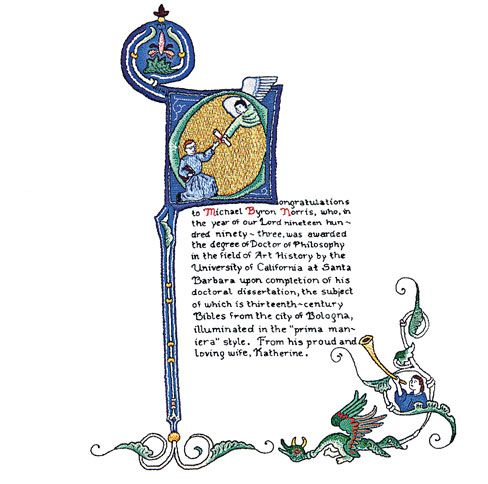 Congratulations
to Michael Byron Norris, who, in
the year of our Lord nineteen hun~
dred ninety~three, was awarded
the degree of Doctor of Philosophy
in the field of Art History by the
University of California at Santa
Barbara upon completion of his
doctoral dissertation, the subject
of which is thirteenth~century
Bibles from the city of Bologna,
illuminated in the "prima man~
iera" style. From his proud and
loving wife, Katherine.